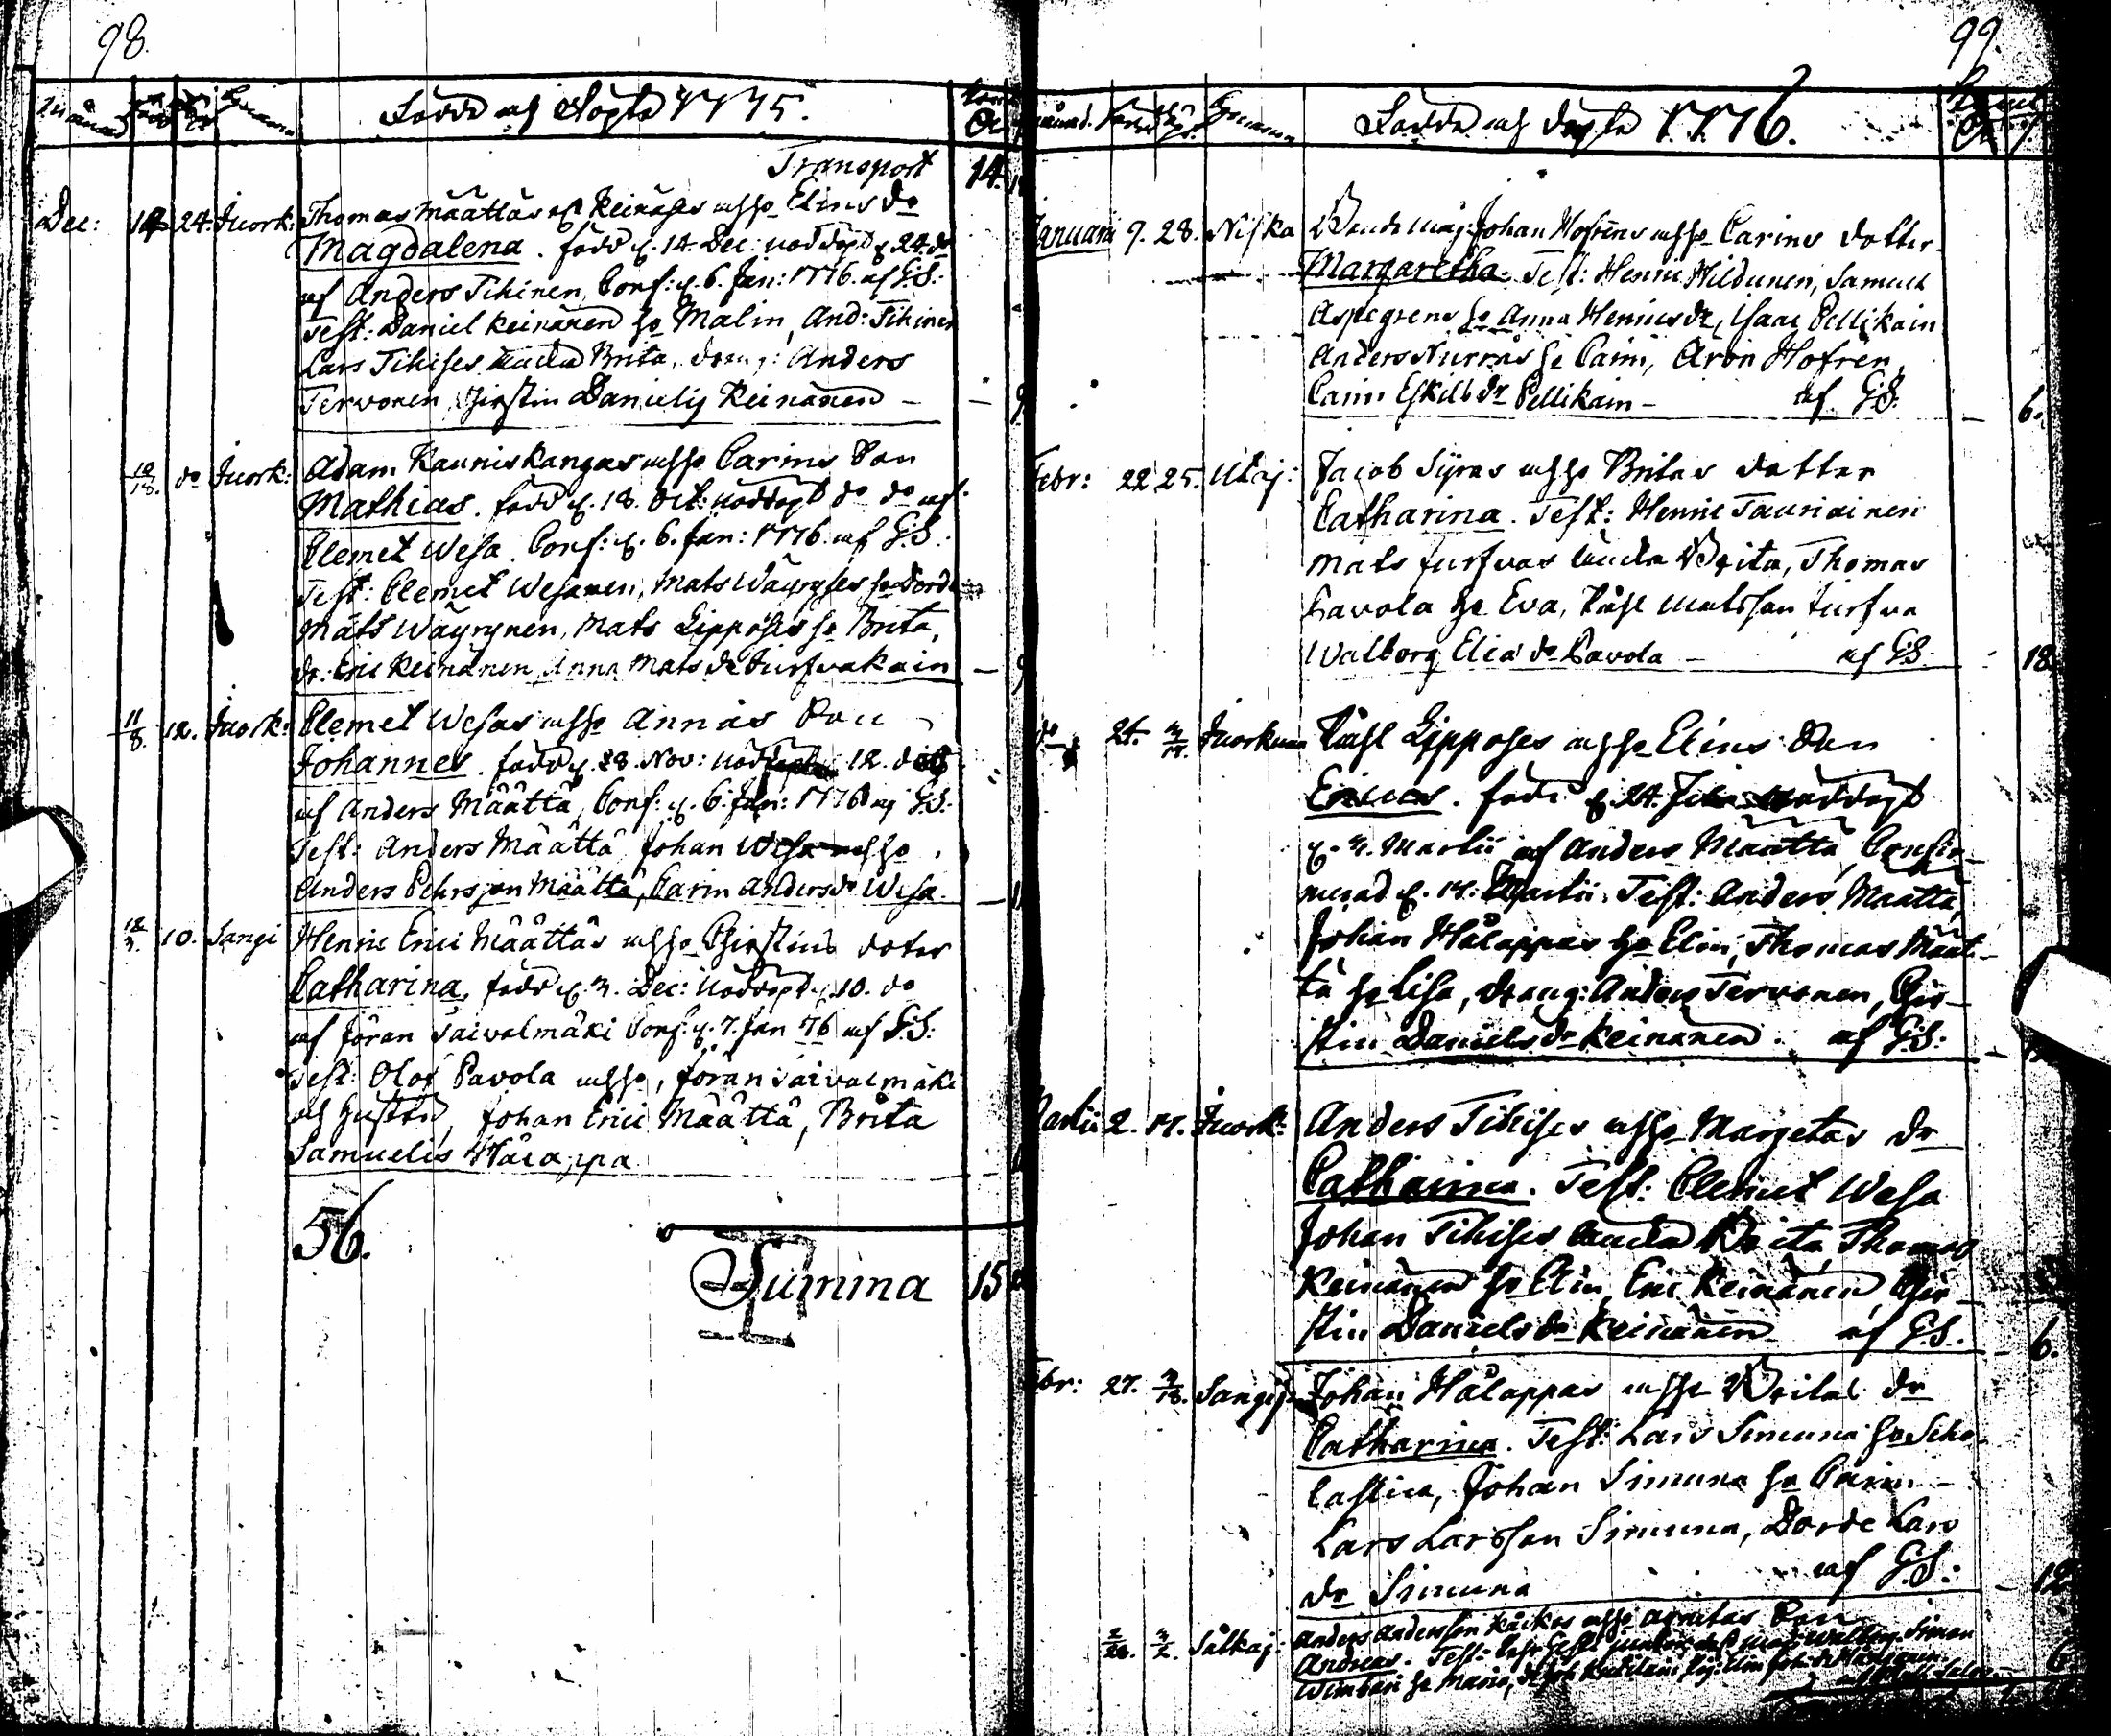 98.
Månad Född Döpt Byarne Födde och Döpte 1775.
Transport 14.
Dec: 14 24. Juork: Thomas Määttäs och Keinäses och h:o Elins d:r
Magdalena. född d. 14. Dec: nöddöpt d. 24. d:o
af Anders Tihinen, Conf: d. 6. Jan: 1776. af G:S:
Test: Daniel Keinänen h:o Malin, And: Tihinen
Lars Tihises Brita, dräng: Anders
Tervonen, Chirstin Danielis Keinänen –
10/18. d:o Juork: Adam Kauniskangas och h:o Carins Son
Mathias. född d. 18. Oct: nöddöpt d:o d:o af
Clemet Wesa. Conf: d. 6. Jan: 1776. af G:S:
Test: Clemet Wesanen, Mats Wäyryses h:o Dorde
Mats Wäyrynen, Mats Lipposes h:o Brita,
dr: Eric Keinänen, Anna Mats d:r Turfvakain
11/8. 12. Juork: Clemet Wesas och h:o Annas Son
Johannes. född d. 8. Nov: 12.
af Anders Määttä, Conf: d. 6. Jan: 1776 af G:S:
Test: Anders Määttä, Johan Wesa och h:o
Anders Pehrsson Määttä, Carin Anders d:r Wesa.
12/3. 10. Sangi Henric Erici Määttäs och h:o Chirstins doter
Catharina, född d. 3. Dec: Nöddöpt d. 10. d:o
af Jöran Saivalmäki Conf: d. 7. Jan 76 af G:S:
Test: Olof Pavola och h:o, Jöran Saivalmäki
och hustru, Johan Erici Määttä, Brita
Samuelis Hälappa
56.
Summa 15
99.
Månad. Född Döpt. Byarne Födde och Döpte 1776.
Januarii 9. 28. Niska Johan Hofréns och h:o Carins dotter
Margaretha. Test: Henric Hildunen, Samuel
Aspegrens h:o Anna Henrics d:r, Isaac Pellikain
Anders Nurras h:o Carin, Aron Hofrén,
Carin Eskils d:r Pellikain – af G:S: 6.
Febr: 22 25. Utaj: Jacob Syras och h:o Britas dotter
Catharina. Test: Henric Tauriainen
Mats Turfvas Brita, Thomas
Pavola h:o Eva, Påhl Matsson Turfva
Walborg Elia d:r Pavola – af G:S: 18.
d:o 24. 3/17. Juorkuna Påhl Lipposes och h:o Elins Son
Ericus. född d. 24. nöddöpt
d. 3. Martii af Anders Määttä, Confir-
merad d. 17. Martii. Test: Anders Määttä,
Johan Hålappas h:o Elin, Thomas Määt-
tä h:o Lisa, dräng: Anders Tervonen, Chir-
stin Daniels d:r Keinänen. af G:S:
Martii 2. 17. Juork: Anders Tihises och h:o Margetas d:r
Catharina. Test: Clemet Wesa
Johan Tihises Brita, Thomas
Keinänen h:o Elin, Eric Keinänen, Chir-
stin Daniels d:r Keinänen af G:S. 6.
Febr: 27. 3/18. Sangij: Johan Hålappas och h:o Britas d:r
Catharina. Test: Lars Simuna h:o Scho-
lastica, Johan Simuna h:o Carin –
Lars Larsson Simuna, Dorde Lars
d:r Simuna af G:S: 12
2/26. 3/2. Sålkaj: Anders Andersson Käckes och h:o Agnetas Son
Andreas. Test: Walborg. Simon
h:o Maria,